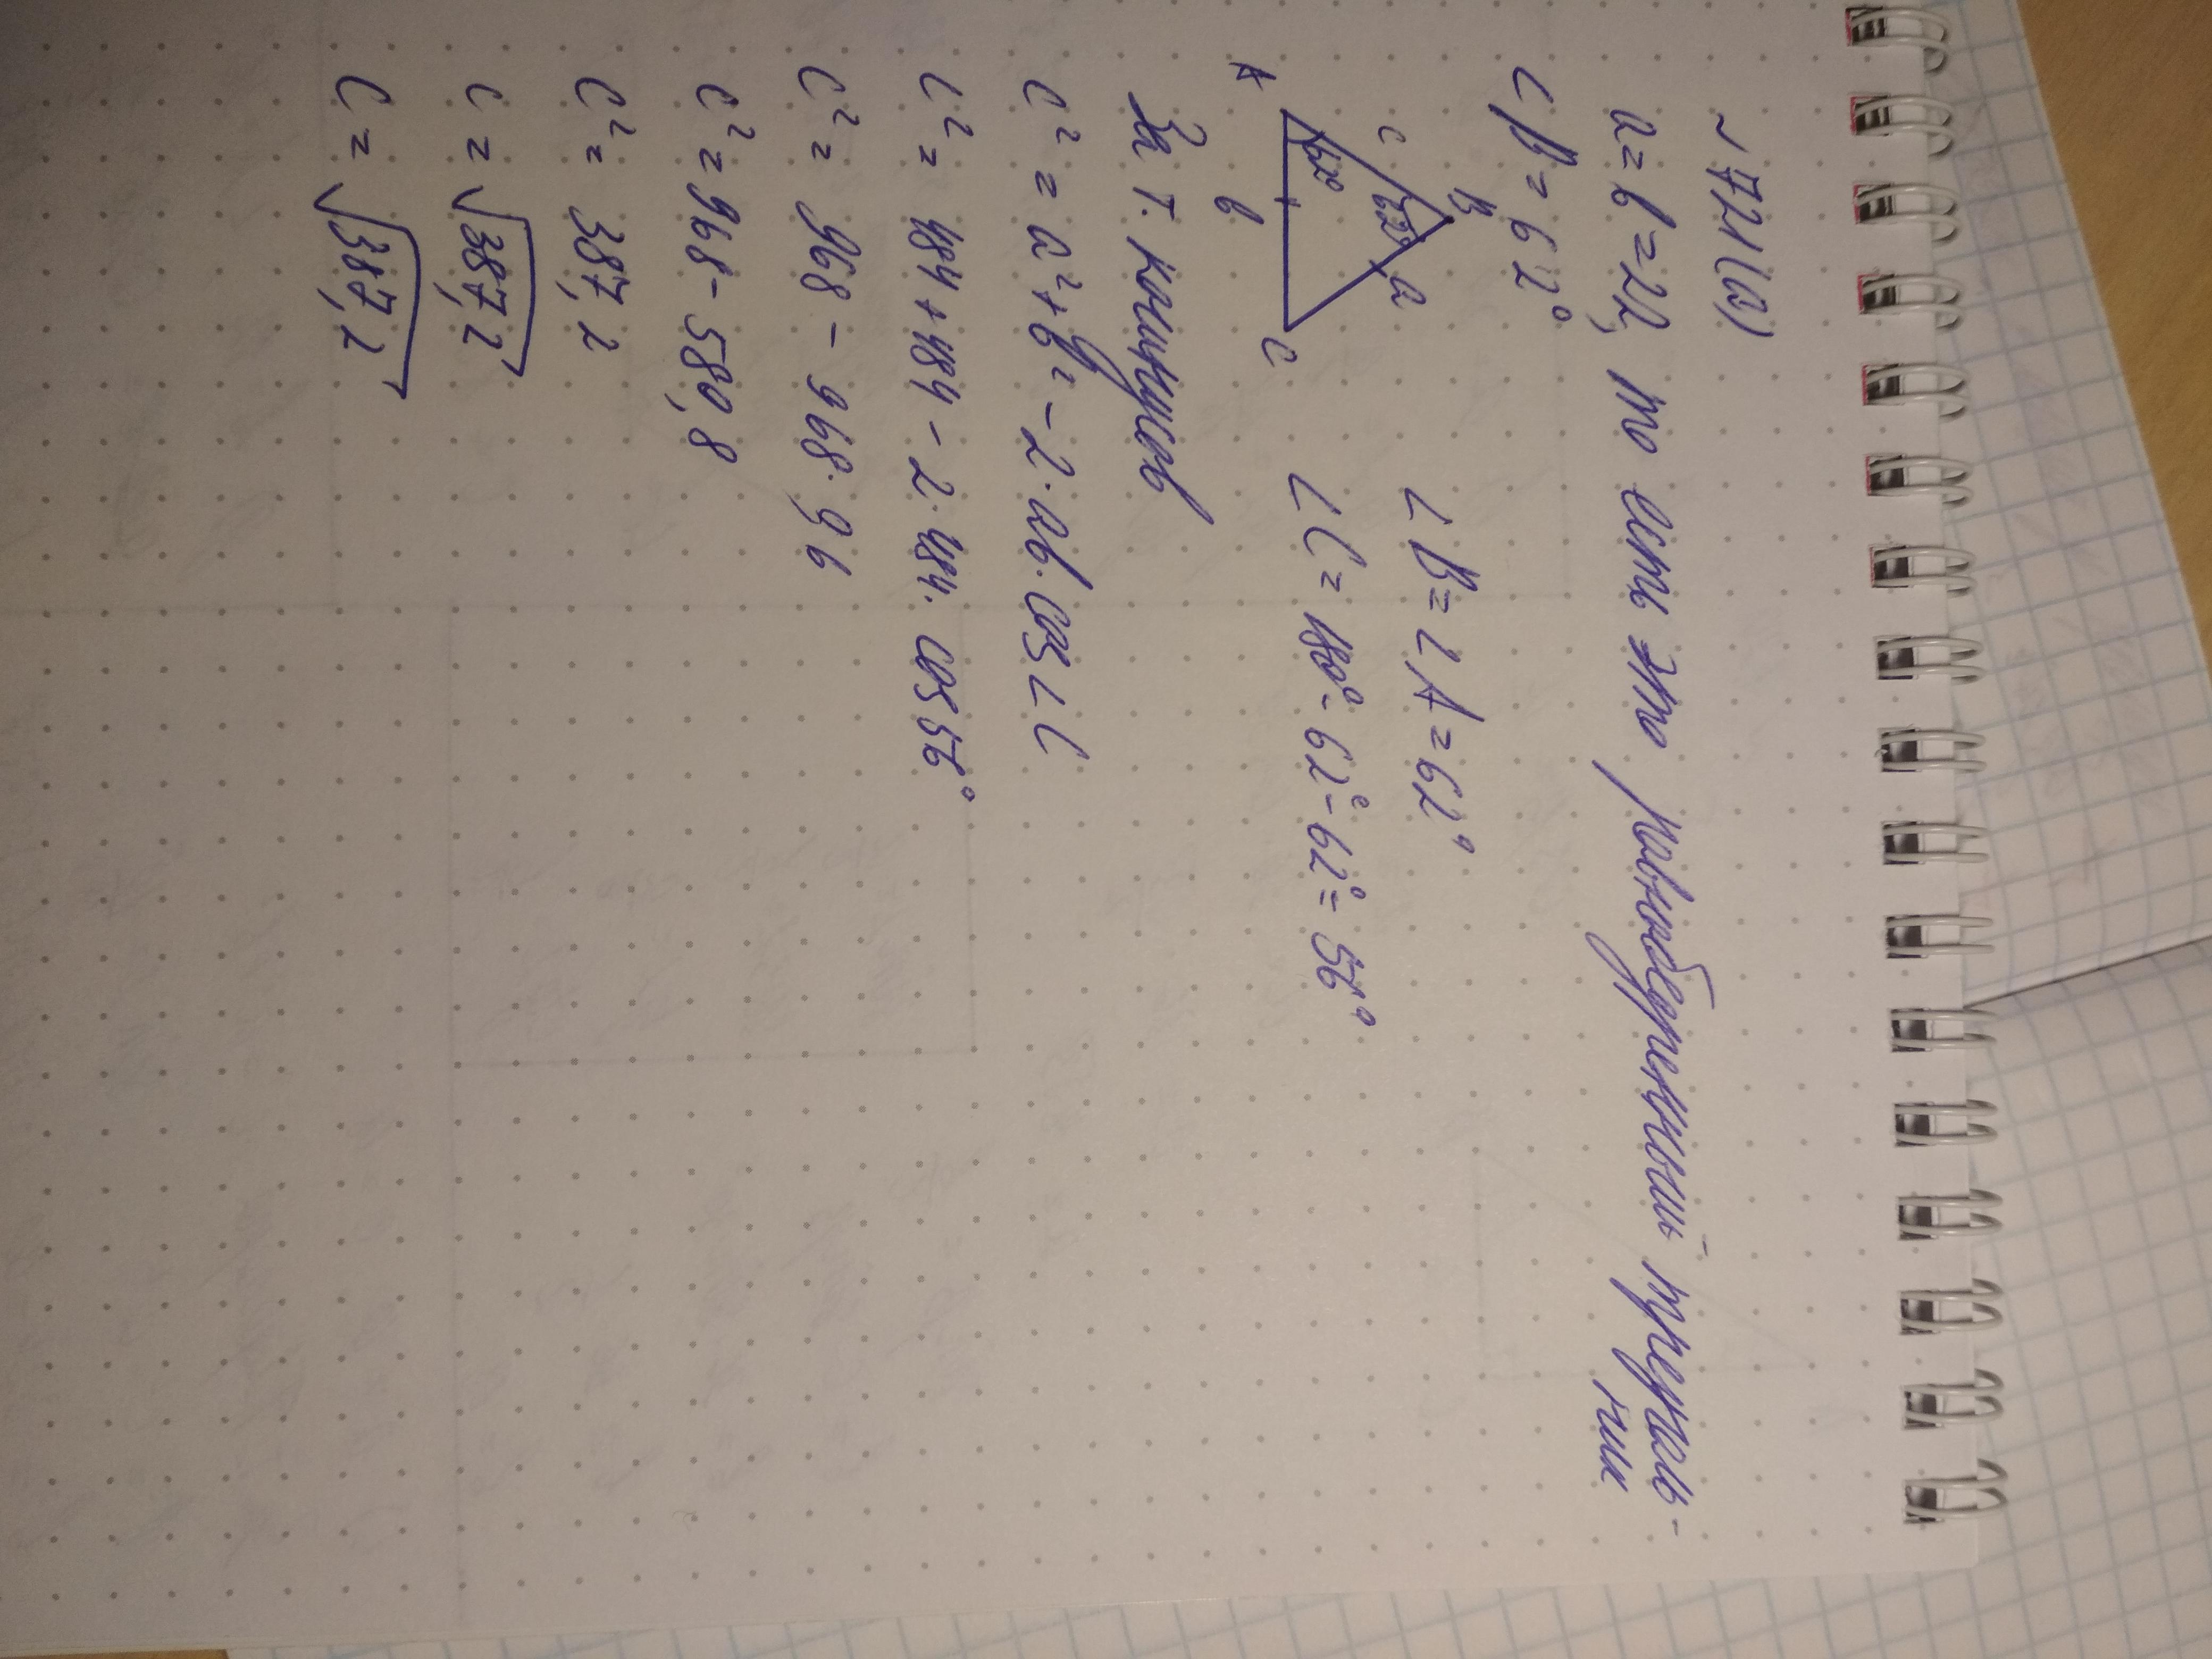 ~ 721(а)
a = b = 22, то есть это равнобедренный треуголь-
ник
∠B = 62°
B
c
62°
a
62°
A
b
C
∠B = ∠A = 62°
∠C = 180° - 62° - 62° = 56°
За т. косинусов
c² = a² + b² - 2 · ab · cos ∠C
c² = 484 + 484 - 2 · 484 · cos 56°
c² = 968 - 968 · 96
c² = 968 - 580,8
c² = 387,2
c = √387,2
c = √387,2